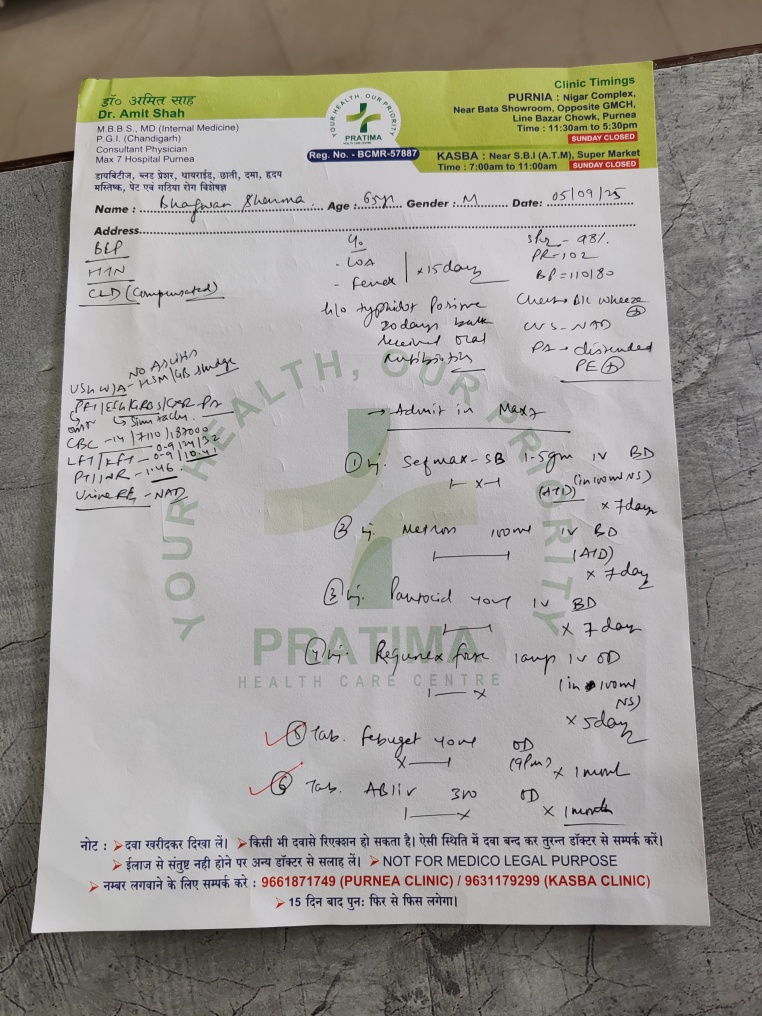 डॉ० अमित साह
Dr. Amit Shah
M.B.B.S., MD (Internal Medicine)
P.G.I. (Chandigarh)
Consultant Physician
Max 7 Hospital Purnea
डायबिटीज, ब्लड प्रेशर, थायराईड, छाती, दमा, हृदय
मस्तिष्क, पेट एवं गठिया रोग विशेषज्ञ
YOUR HEALTH, OUR PRIORITY
PRATIMA
HEALTH CARE CENTRE
Reg. No. - BCMR-57887
Clinic Timings
PURNIA : Nigar Complex,
Near Bata Showroom, Opposite GMCH,
Line Bazar Chowk, Purnea
Time : 11:30am to 5:30pm
SUNDAY CLOSED
KASBA : Near S.B.I (A.T.M), Super Market
Time : 7:00am to 11:00am SUNDAY CLOSED
Name : Bhagwan Sharma Age : 65yr Gender : M Date: 05/09/25
Address
BEP
HTN
CLD (Compensated)
- LOA
- Fever
x 15 days
h/o typhidot Positive
20 days back
received oral
Antibiotics
- 98%
PR = 102
BP = 110/80
Chest - B/L wheeze +
CVS - NAD
PA - distended
PE +
NO Ascites
USG W/A - HSM/GB sludge
CBC - 14/7110/187000
LFT/KFT - 0.9/24/32
0.9/10.41
PT/INR - 1.46
Urine RE - NAD
→ Admit in Max7
① inj. Sefmax-SB 1.5gm IV BD
(ATD) (in 100ml NS)
x 7 days
② inj. Metron 100ml IV BD
(ATD)
x 7 days
③ inj. Pantocid 40mg IV BD
x 7 days
④ inj. 1amp IV OD
(in 100ml
NS)
x 5 days
⑤ Tab. Febuget 40mg OD
(9Pm) x 1 month
⑥ Tab. ABliv 300 OD
x 1 month
YOUR HEALTH, OUR PRIORITY
PRATIMA
HEALTH CARE CENTRE
नोट : ➤ दवा खरीदकर दिखा लें। ➤ किसी भी दवासे रिएक्शन हो सकता है। ऐसी स्थिति में दवा बन्द कर तुरन्त डॉक्टर से सम्पर्क करें।
➤ ईलाज से संतुष्ट नही होने पर अन्य डॉक्टर से सलाह लें। ➤ NOT FOR MEDICO LEGAL PURPOSE
➤ नम्बर लगवाने के लिए सम्पर्क करे : 9661871749 (PURNEA CLINIC) / 9631179299 (KASBA CLINIC)
➤ 15 दिन बाद पुन: फिर से फिस लगेगा।